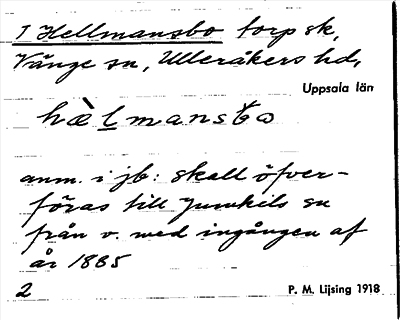 1 Hellmansbo torp sk,
Vänge sn, Ulleråkers hd,
Uppsala län
hæ̀lmansbω
anm. i jb: skall öfver-
föras till Jumkils sn
från v. med ingången af
år 1885
2 P. M. Lijsing 1918